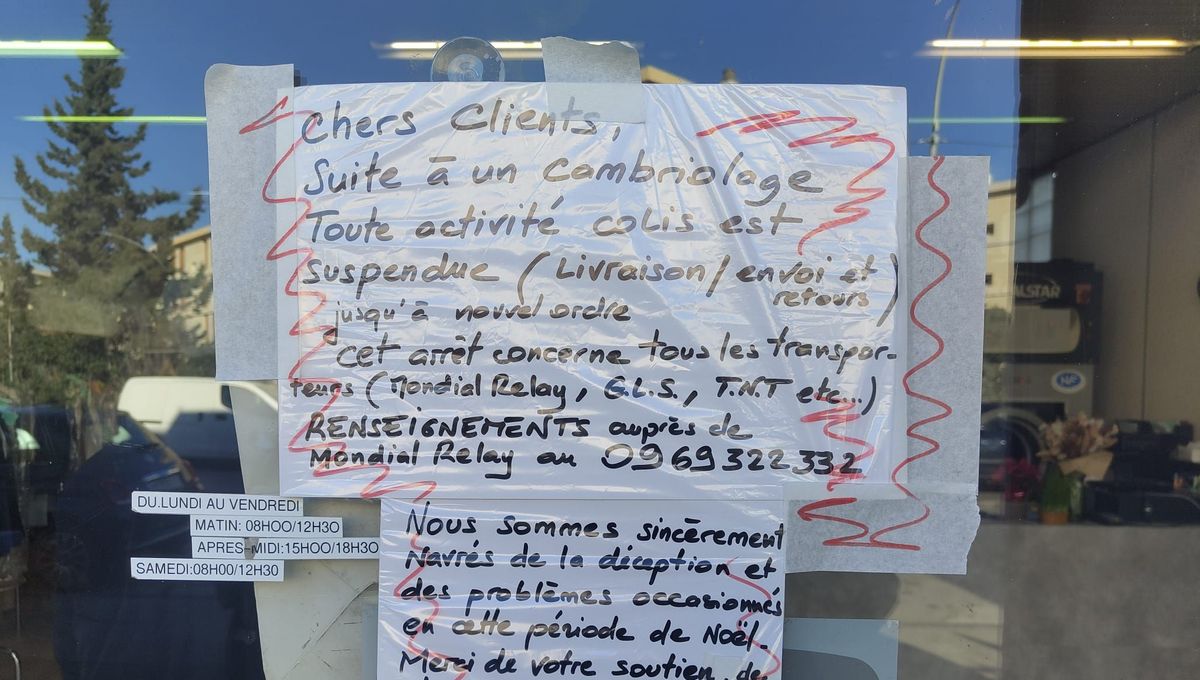 Chers Clients,
Suite à un Cambriolage
Toute activité colis est
suspendue (Livraison/envoi et retours)
jusqu'à nouvel ordre
cet arrêt concerne tous les transpor-
teurs (Mondial Relay, G.L.S., T.N.T etc...)
RENSEIGNEMENTS auprès de
Mondial Relay au 09 69 322 332
Nous sommes sincèrement
Navrés de la déception et
des problèmes occasionnés
en cette période de Noël.
Merci de votre soutien, de
DU.LUNDI AU VENDREDI
MATIN: 08HOO/12H3O
APRES-MIDI:15HOO/18H3O
SAMEDI:08H00/12H30
NF